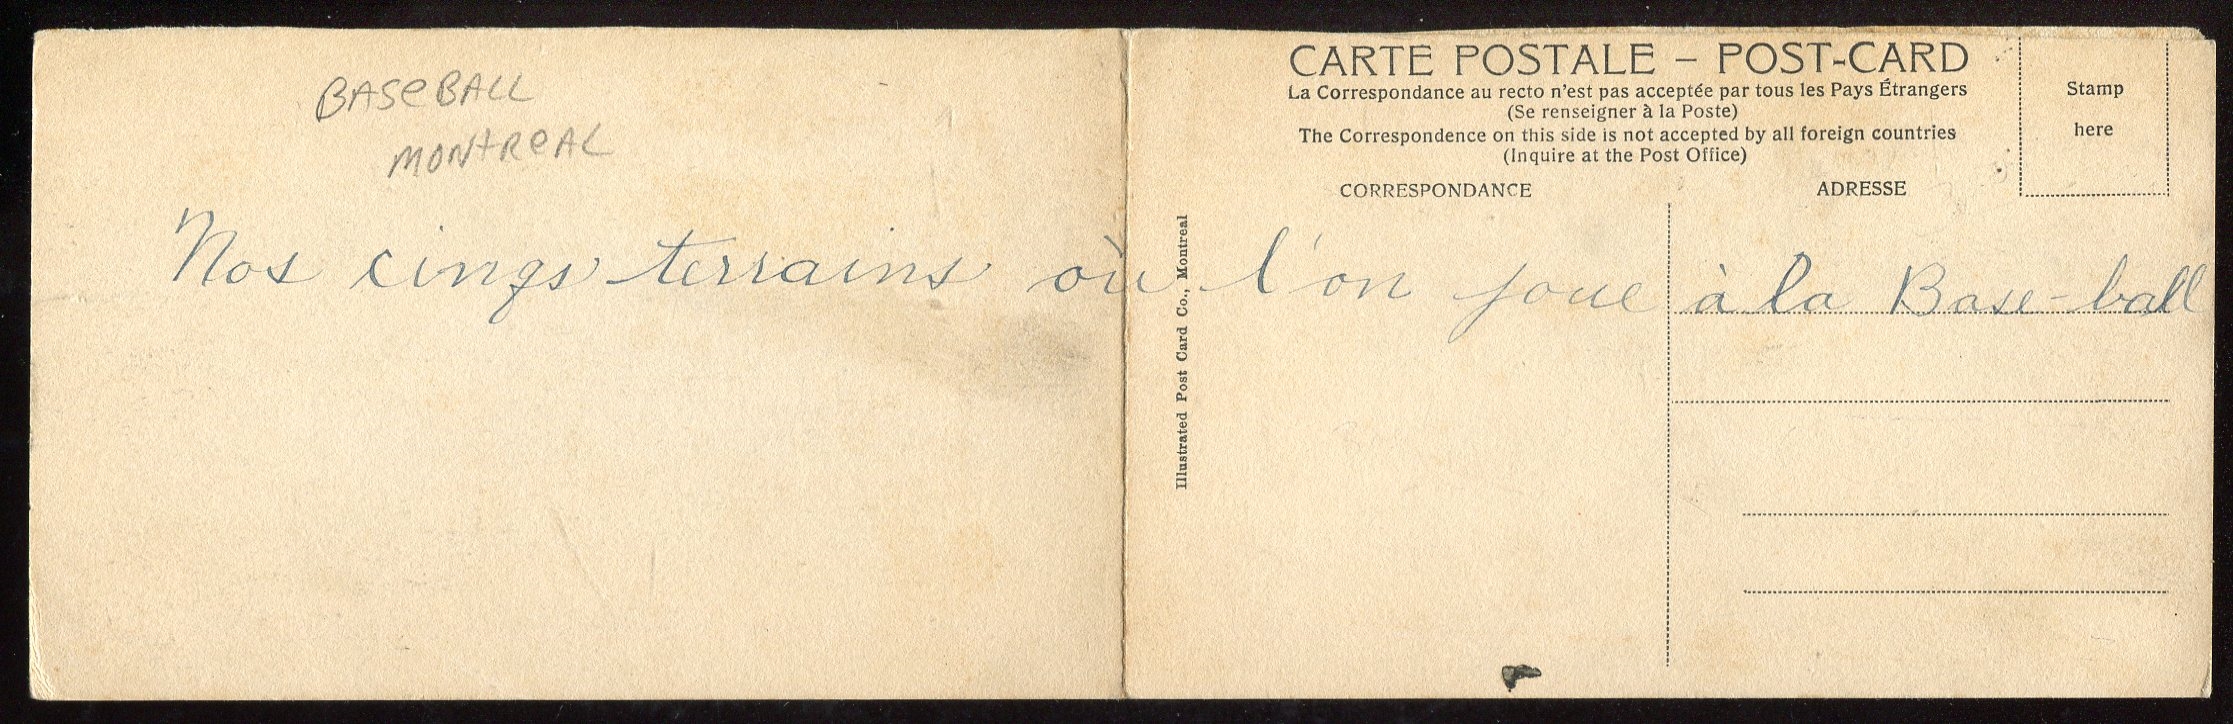 BASEBALL
MONTREAL
CARTE POSTALE – POST-CARD
La Correspondance au recto n'est pas acceptée par tous les Pays Étrangers
(Se renseigner à la Poste)
The Correspondence on this side is not accepted by all foreign countries
(Inquire at the Post Office)
Stamp
here
CORRESPONDANCE
ADRESSE
Nos cinqs terrains où l'on joue à la Base-ball
Illustrated Post Card Co., Montreal